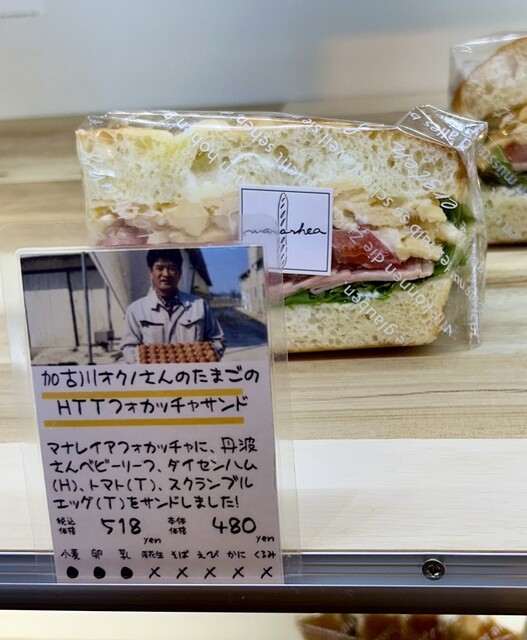 加古川オクノさんのたまごの
HTTフォカッチャサンド
マナレイアフォカッチャに、丹波
さんベビーリーフ、ダイセンハム
(H)、トマト(T)、スクランブル
エッグ(T)をサンドしました!
税込価格 518 yen 本体価格 480 yen
小麦 卵 乳 落花生 そば えび かに くるみ
● ● ● × × × × ×